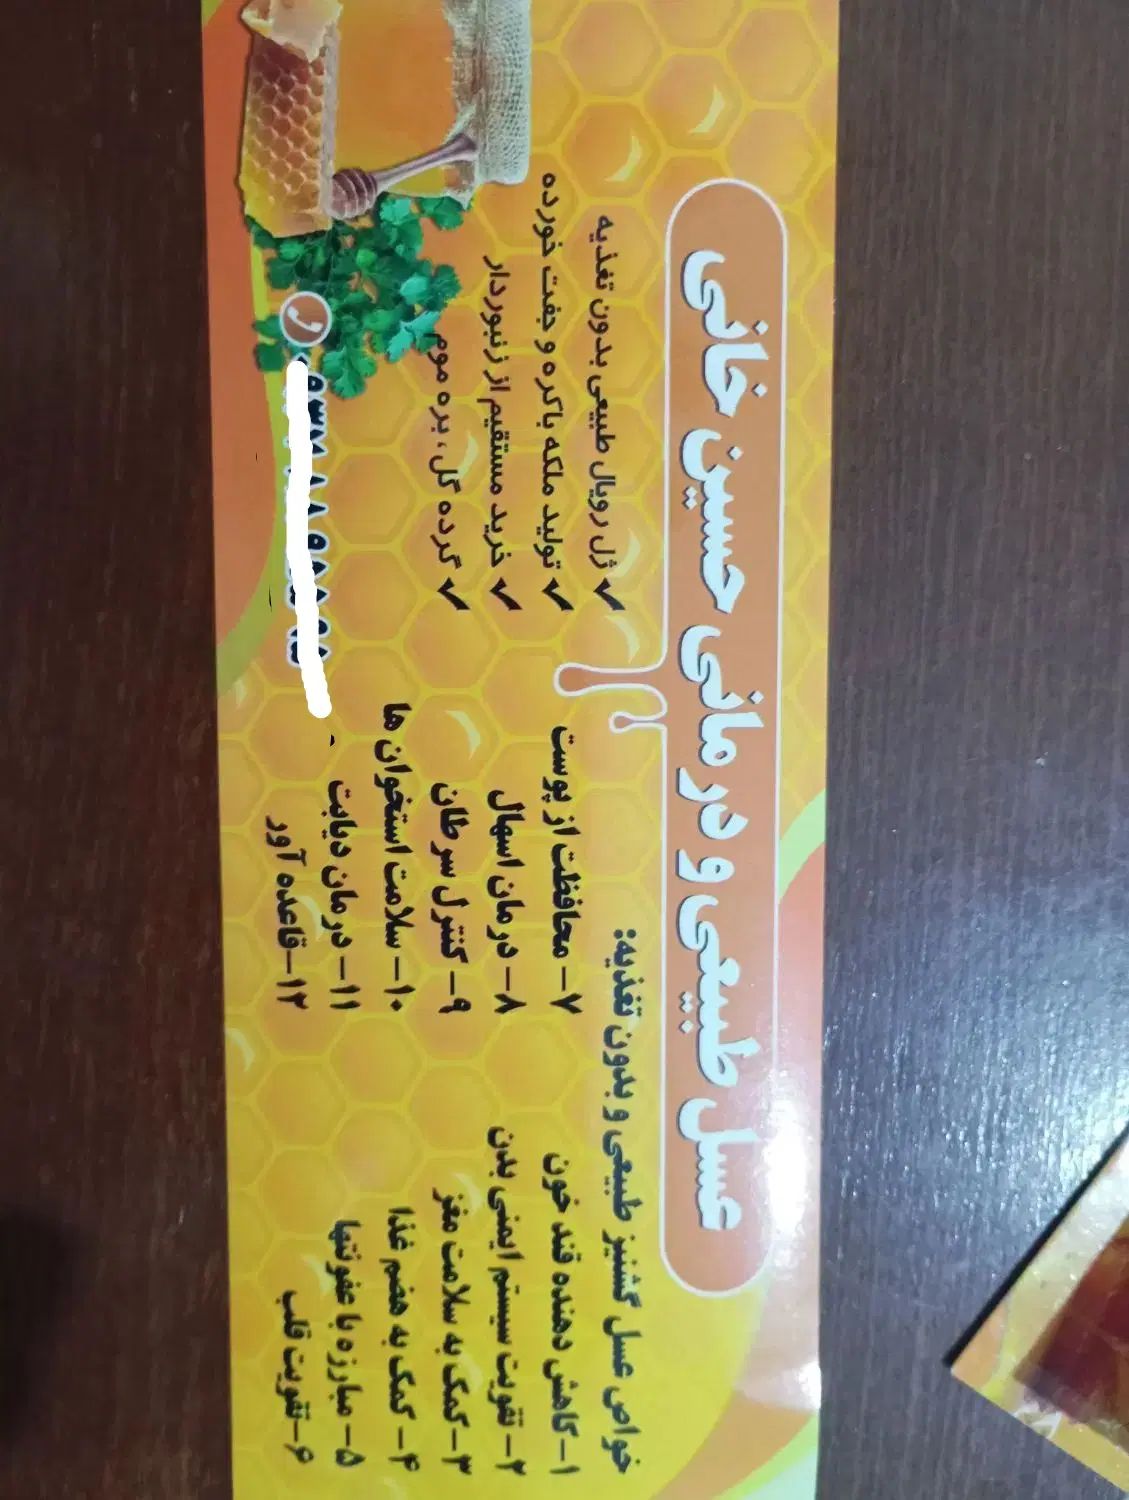 عسل طبیعی و درمانی حسین خانی
خواص عسل گشنیز طبیعی و بدون تغذیه:
۱- کاهش دهنده قند خون
۲- تقویت سیستم ایمنی بدن
۳- کمک به سلامت مغز
۴- کمک به هضم غذا
۵- مبارزه با عفونتها
۶- تقویت قلب
۷- محافظت از پوست
۸- درمان اسهال
۹- کنترل سرطان
۱۰- سلامت استخوان ها
۱۱- درمان دیابت
۱۲- قاعده آور
✓ ژل رویال طبیعی بدون تغذیه
✓ تولید ملکه باکره و جفت خورده
✓ خرید مستقیم از زنبوردار
✓ گرده گل، بره موم